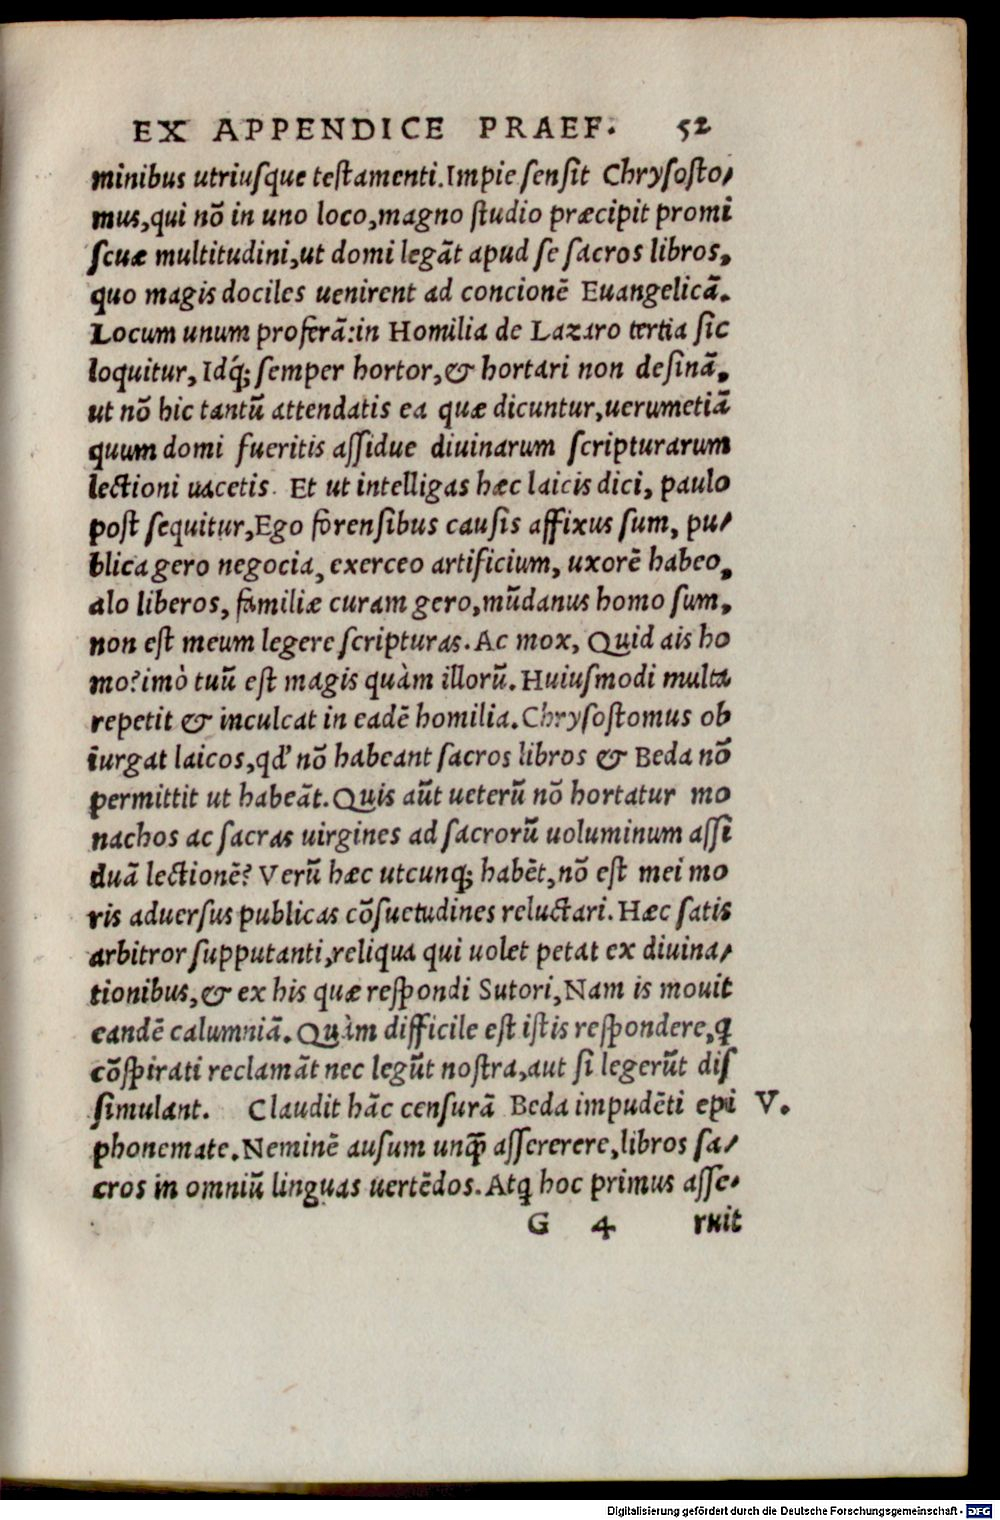 EX APPENDICE PRAEF. 52
minibus utriusque testamenti. Impie sensit Chrysosto/
mus, qui nō in uno loco, magno studio præcipit promi
scuæ multitudini, ut domi legāt apud se sacros libros,
quo magis dociles uenirent ad concionē Euangelicā.
Locum unum proferā: in Homilia de Lazaro tertia sic
loquitur, Idq́; semper hortor, & hortari non desinā,
ut nō hic tantū attendatis ea quæ dicuntur, uerumetiā
quum domi fueritis assidue diuinarum scripturarum
lectioni uacetis. Et ut intelligas hæc laicis dici, paulo
post sequitur, Ego forensibus causis affixus sum, pu/
blica gero negocia, exerceo artificium, uxorē habeo,
alo liberos, familiæ curam gero, mūdanus homo sum,
non est meum legere scripturas. Ac mox, Quid ais ho
mo? imò tuū est magis quàm illorū. Huiusmodi multa
repetit & inculcat in eadē homilia. Chrysostomus ob
iurgat laicos, qd' nō habeant sacros libros & Beda nō
permittit ut habeāt. Quis aūt ueterū nō hortatur mo
nachos ac sacras uirgines ad sacrorū uoluminum assi
duā lectionē? Verū hæc utcunq; habēt, nō est mei mo
ris aduersus publicas cōsuetudines reluctari. Hæc satis
arbitror supputanti, reliqua qui uolet petat ex diuina/
tionibus, & ex his quæ respondi Sutori, Nam is mouit
eandē calumniā. Quàm difficile est istis respondere, q
cōspirati reclamāt nec legūt nostra, aut si legerūt dis
simulant. Claudit hāc censurā Beda impudēti epi V.
phonemate. Neminē ausum unq̄ assererere, libros sa/
cros in omniū linguas uertēdos. Atq hoc primus asse-
G 4 ruit
Digitalisierung gefördert durch die Deutsche Forschungsgemeinschaft - DFG